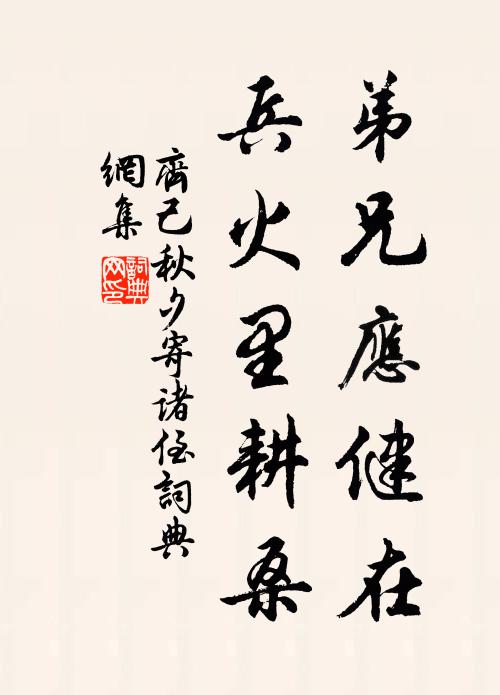 弟兄應健在
兵火里耕桑
齊己秋夕寄诸侄詞典
網集
詞典
网印